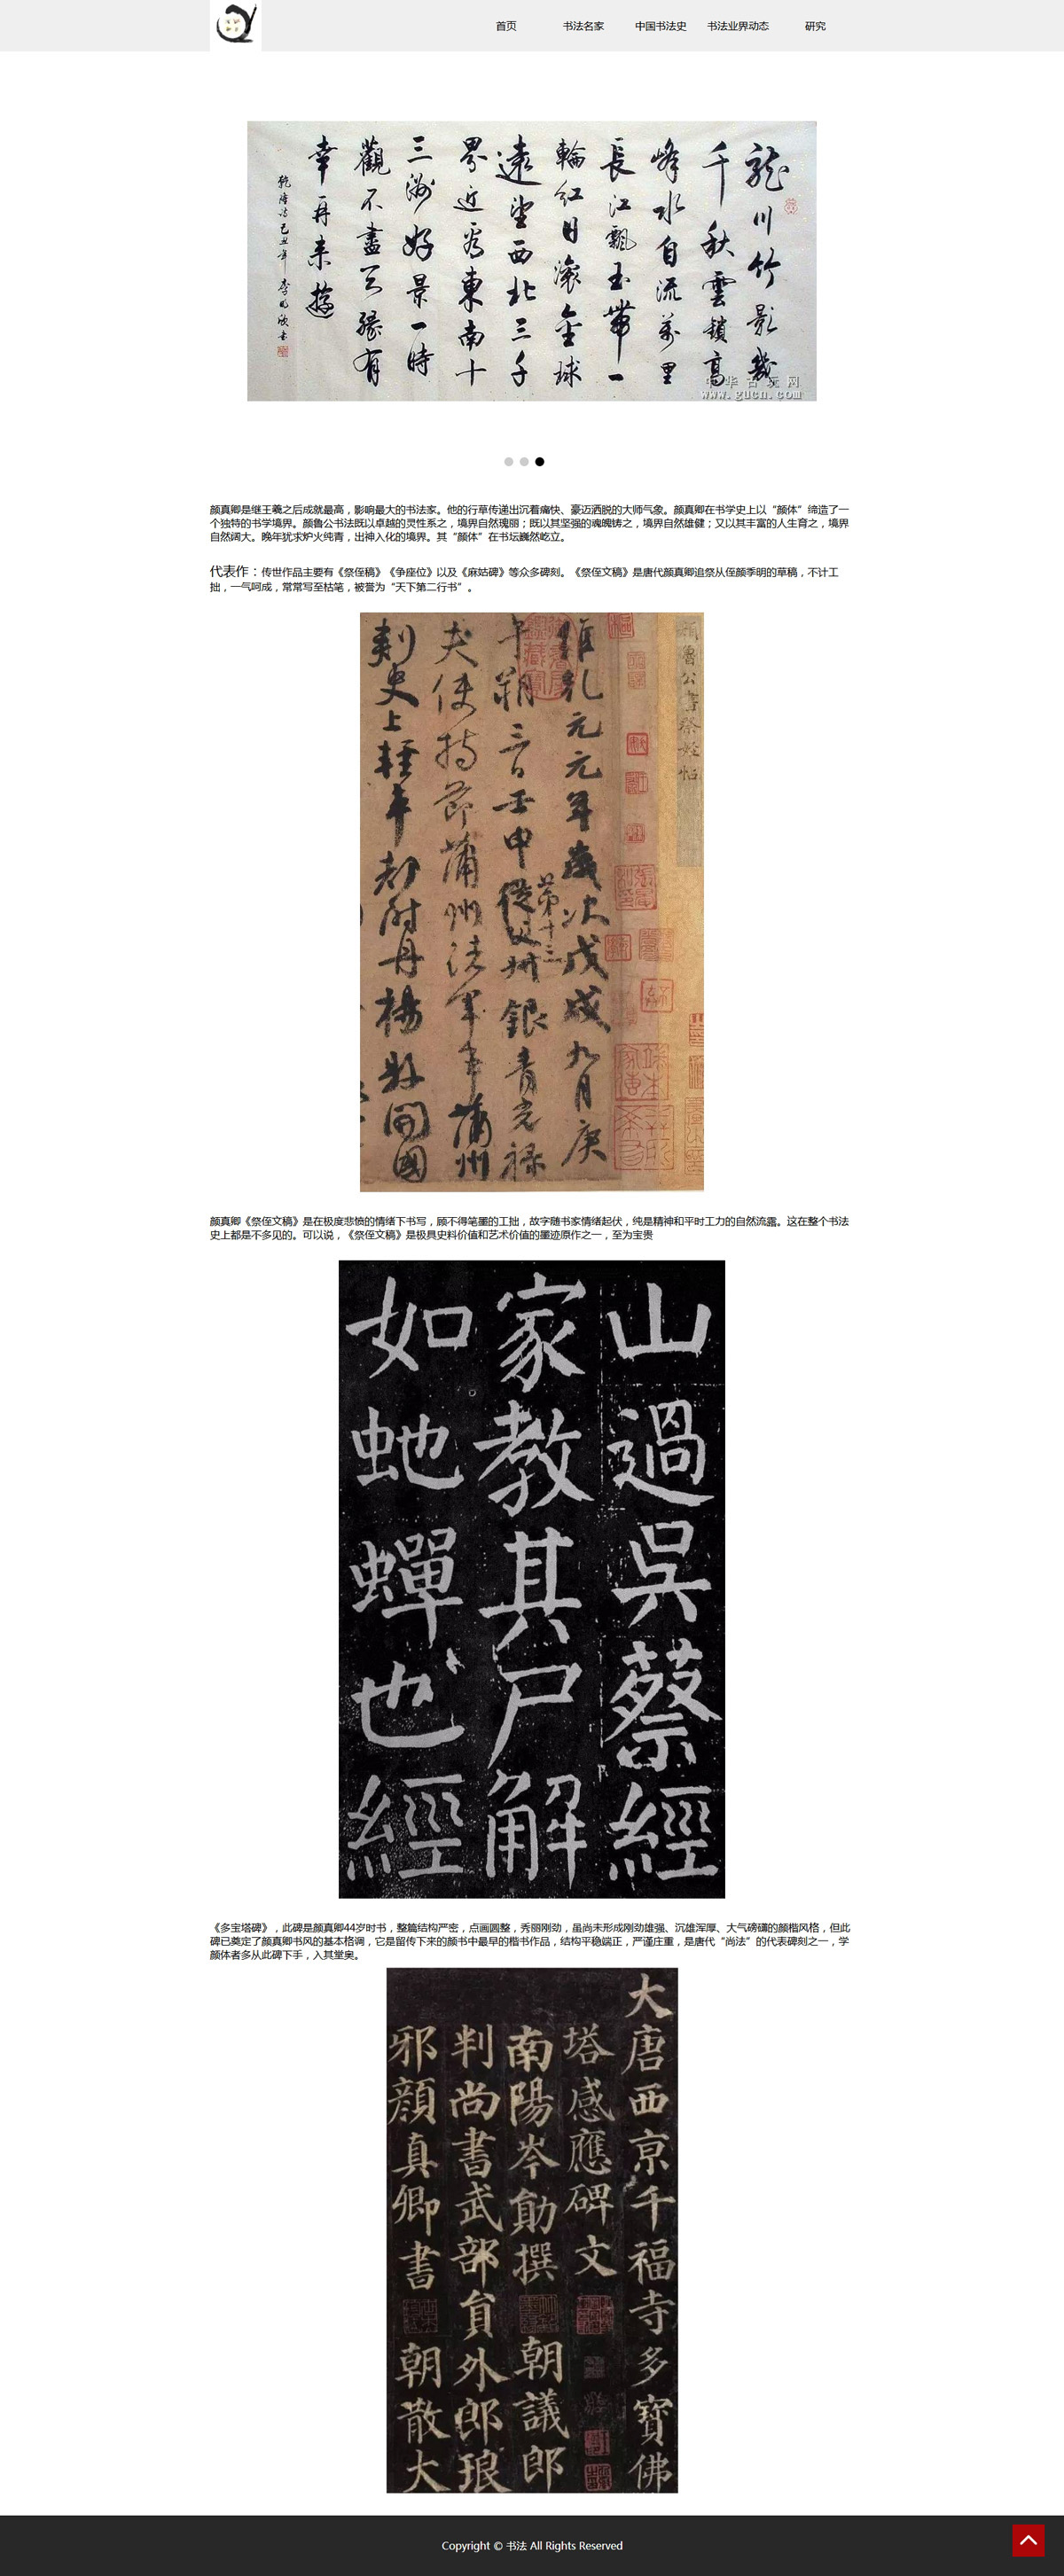 首页 书法名家 中国书法史 书法业界动态 研究
龍川竹影幾
千秋雲鎖高
峰水自流萬里
長江飄玉帶一
輪紅日滾金球
遠望西北三千
界近看東南十
三洲好景一時
觀不盡天緣有
幸再來遊
乾隆诗己丑年
中华古玩网
www.gucn.com
颜真卿是继王羲之后成就最高，影响最大的书法家。他的行草传递出沉着痛快、豪迈洒脱的大师气象。颜真卿在书学史上以“颜体”缔造了一
个独特的书学境界。颜鲁公书法既以卓越的灵性系之，境界自然瑰丽；既以其坚强的魂魄铸之，境界自然雄健；又以其丰富的人生育之，境界
自然阔大。晚年犹求炉火纯青，出神入化的境界。其“颜体”在书坛巍然屹立。
代表作：传世作品主要有《祭侄稿》《争座位》以及《麻姑碑》等众多碑刻。《祭侄文稿》是唐代颜真卿追祭从侄颜季明的草稿，不计工
拙，一气呵成，常常写至枯笔，被誉为“天下第二行书”。
顏魯公書祭姪帖
維乾元元年歲次戊戌九月庚
午朔三日壬申第十三從父銀青光祿
夫使持節蒲州諸軍事蒲州
刺史上輕車都尉丹楊縣開國
颜真卿《祭侄文稿》是在极度悲愤的情绪下书写，顾不得笔墨的工拙，故字随书家情绪起伏，纯是精神和平时工力的自然流露。这在整个书法
史上都是不多见的。可以说，《祭侄文稿》是极具史料价值和艺术价值的墨迹原作之一，至为宝贵
山過吳蔡經
家教其尸解
如虵蟬也經
《多宝塔碑》，此碑是颜真卿44岁时书，整篇结构严密，点画圆整，秀丽刚劲，虽尚未形成刚劲雄强、沉雄浑厚、大气磅礴的颜楷风格，但此
碑已奠定了颜真卿书风的基本格调，它是留传下来的颜书中最早的楷书作品，结构平稳端正，严谨庄重，是唐代“尚法”的代表碑刻之一，学
颜体者多从此碑下手，入其堂奥。
大唐西亰千福寺多寶佛
塔感應碑文
南陽岑勛撰 朝議郎
判尚書武部員外郎琅
邪顏真卿書 朝散大
Copyright © 书法 All Rights Reserved